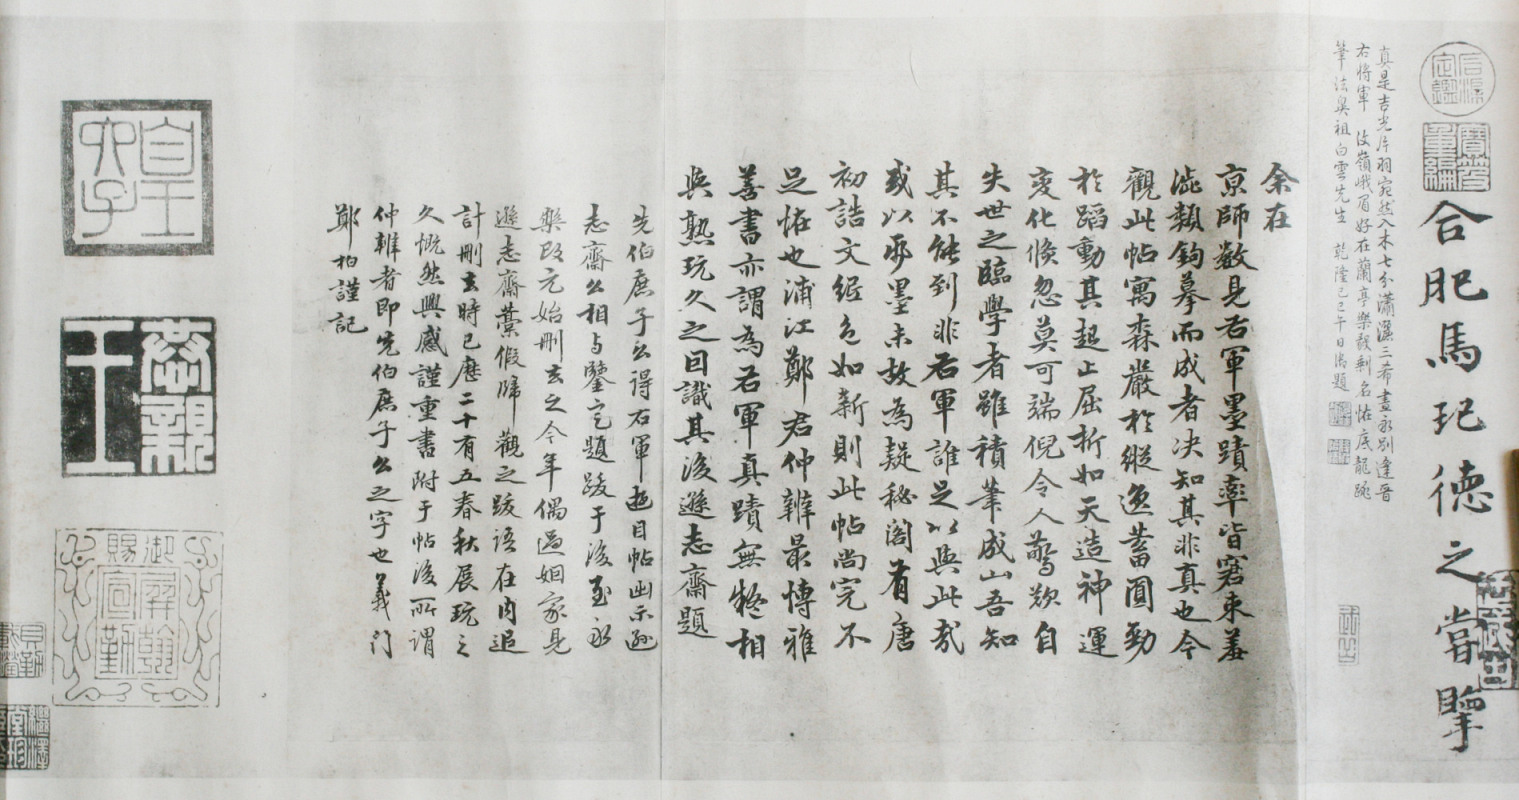 合肥馬玘德之嘗擥
真是吉光片羽宛然入木七分瀟灑三希盡永別逢晉
右將軍 汶嶺峨眉好在蘭亭樂毅剩名帖底龍跳
筆法鼻祖白雲先生 乾隆己巳午日御題
余在
京師數見右軍墨蹟率皆窘束羞
澁類鉤摹而成者决知其非真也今
觀此帖寓森嚴於縱逸蓄圓勁
於蹈動其起止屈折如天造神運
變化倏忽莫可端倪令人驚歎自
失世之臨學者雖積筆成山吾知
其不能到非右軍誰足以與此哉
或以乎墨未故為疑秘閣有唐
初誥文絹色如新則此帖尚完不
足怪也浦江鄭君仲辦最博雅
善書亦謂為右軍真蹟無疑相
與熟玩久之因識其後遜志齋題
先伯庶子公得右軍遊目帖出示遜
志齋公相与鑒定題跋于後至永
樂改元始刪去之今年偶過姻家見
遜志齋藁假歸 觀之跋語在內追
計刪去時已應二十有五春秋展玩之
久慨然興感謹重書附于帖後所謂
仲辦者即先伯庶子公之字也 義門
鄭柏謹記
自王
六子
恭親
王
御
賜
屏翰
宣勤